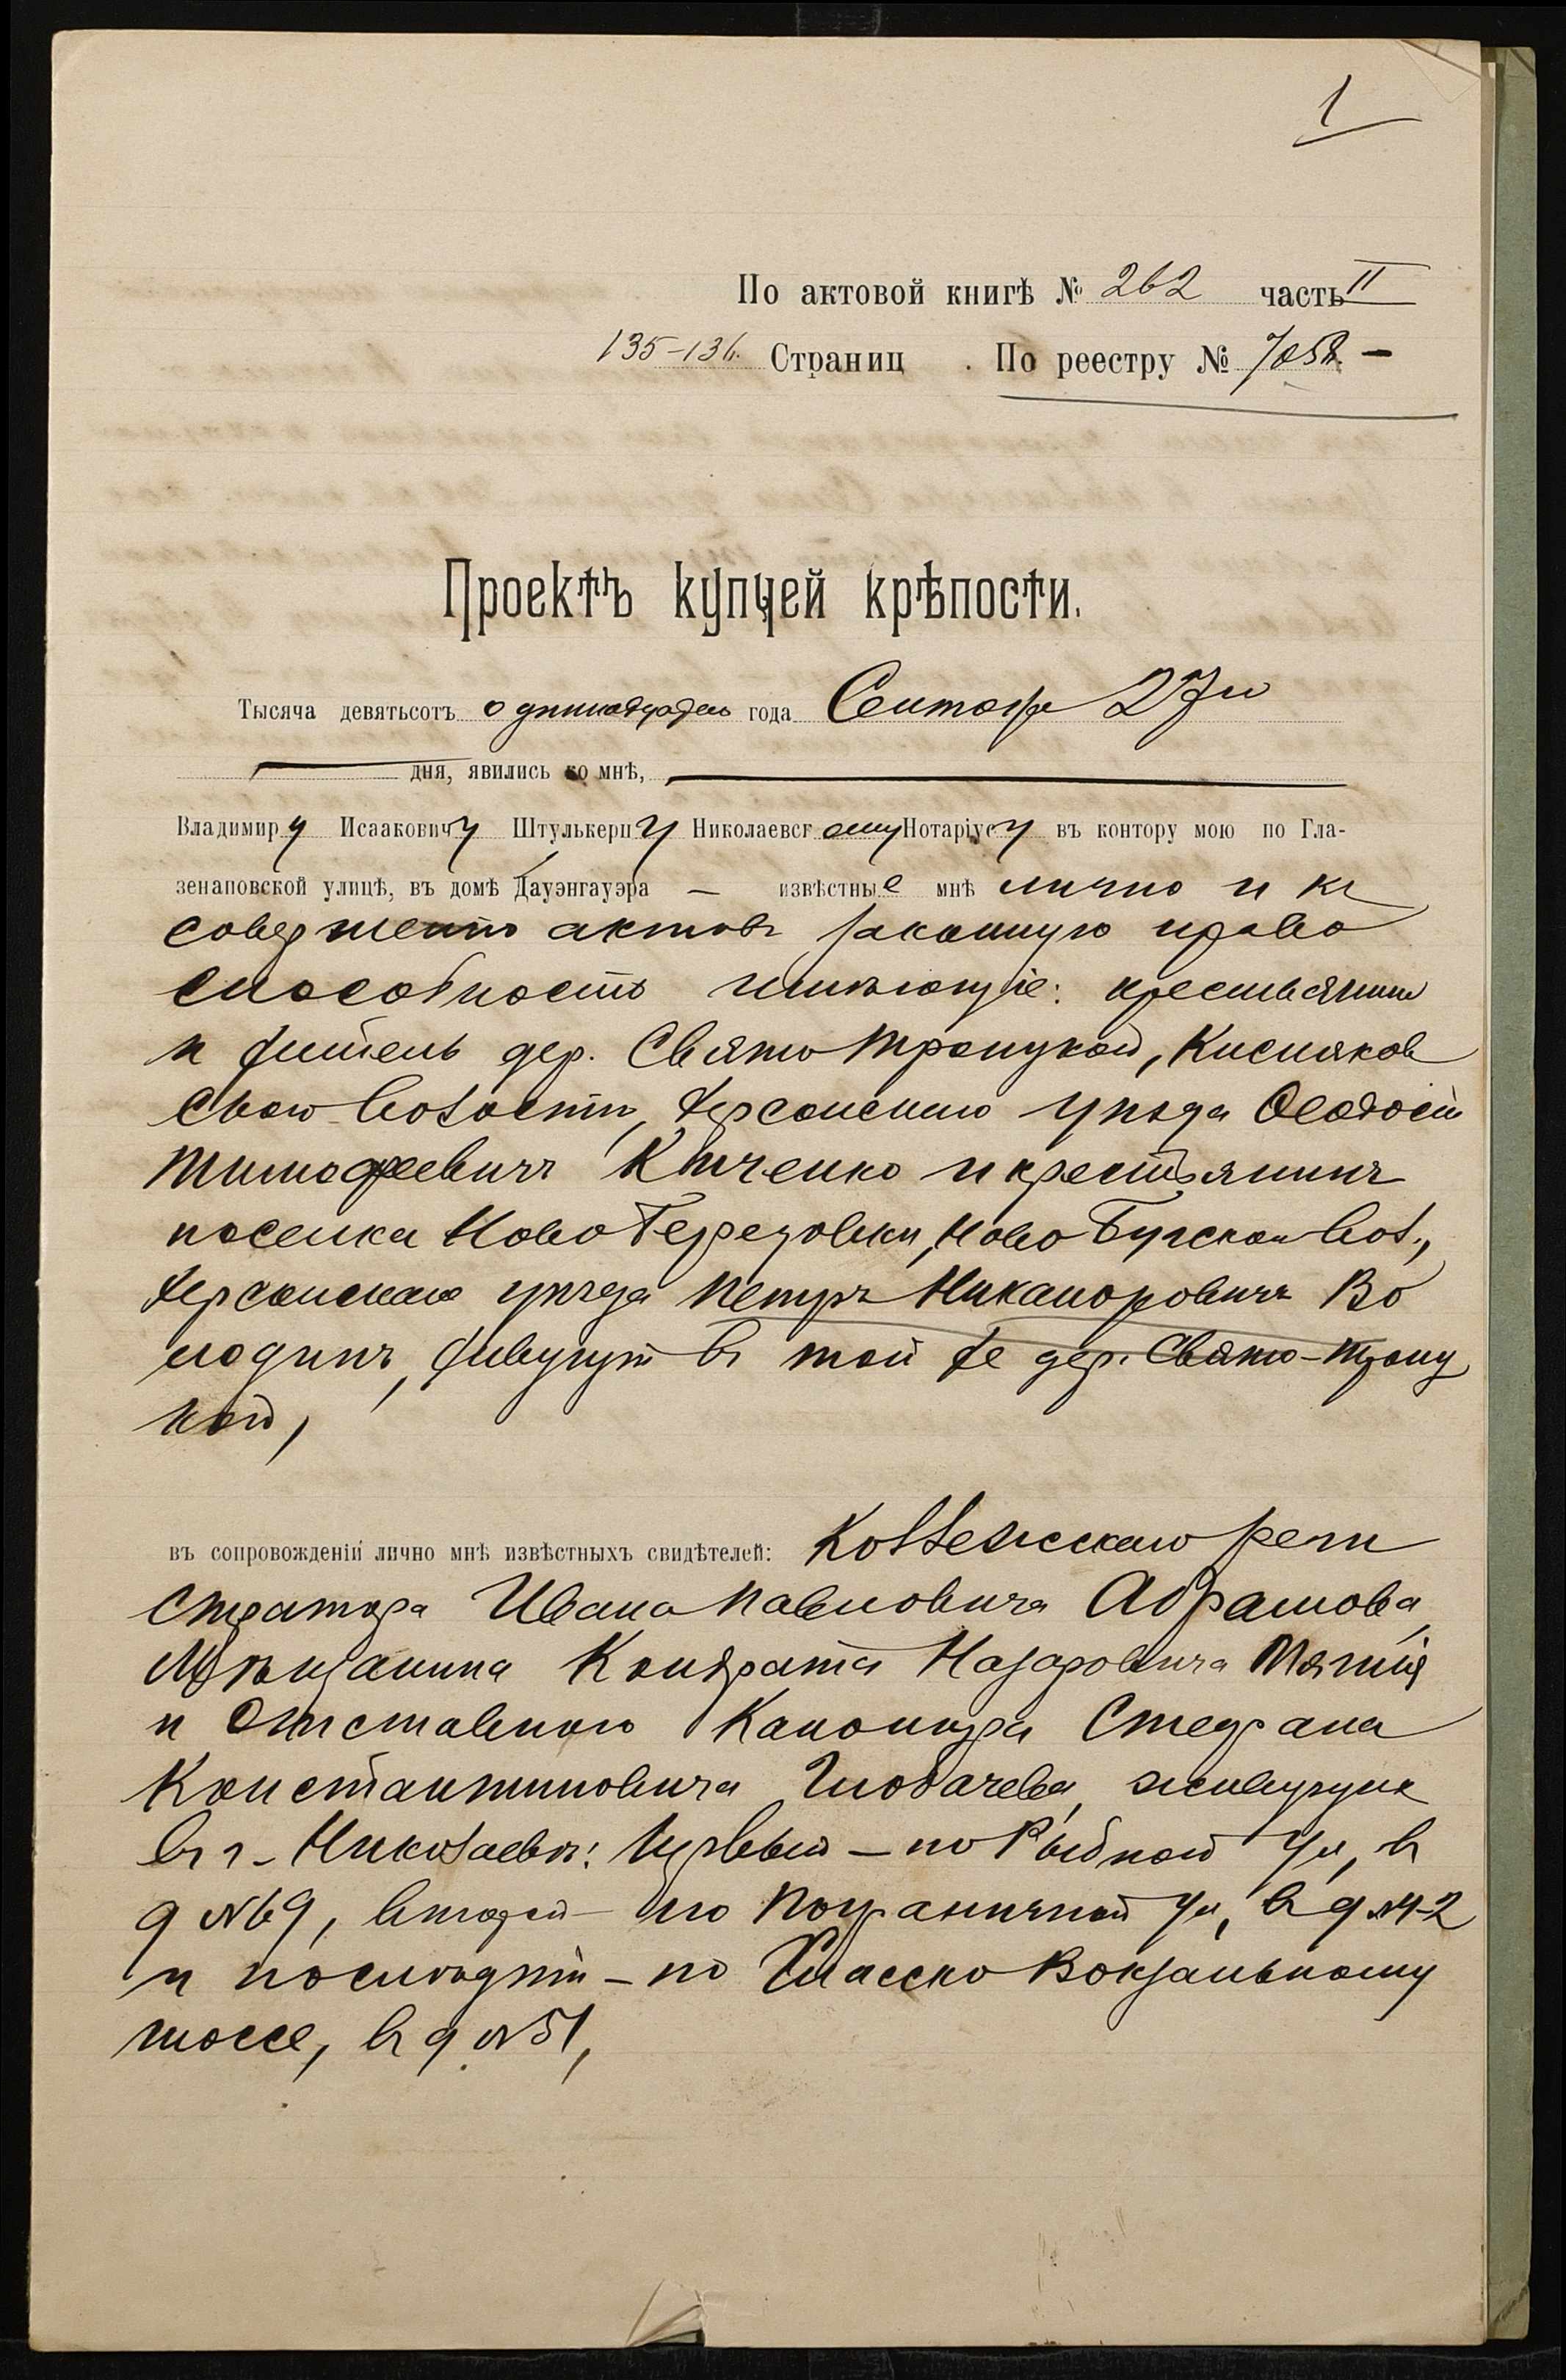 1
По актовой книгѣ № 262 часть II
135–136. Страниц . По реестру № 7058. –
Проектъ купчей крѣпости.
Тысяча девятьсотъ одиннадцатаго года Сентября 27го
дня, явились ко мнѣ,
Владимиру Исааковичу Штулькерцу Николаевскому Нотаріусу въ контору мою по Гла-
зенаповской улицѣ, въ домѣ Дауэнгауэра – извѣстные мнѣ лично и къ
совершенію актовъ законную право
способность имѣющіе: крестьянинъ
и житель дер. Свято Троицкой, Кисляков
ской волости, Херсонскаго уѣзда Ѳеодосій
Тимофеевичъ Китченко и крестьянинъ
поселка Ново Березовки, Ново Бугской вол.,
Херсонскаго уѣзда Петръ Никаноровичъ Во
лодинъ, живущіе въ той же дер. Свято-Троиц
кой,
въ сопровожденіи лично мнѣ извѣстныхъ свидѣтелей: Коллежскаго реги
стратора Ивана Павловича Абрамова,
Мѣщанина Кондрата Назаровича
и Отставного Канонира Стефана
Константиновича Глобачева, живущихъ
въ г. Николаевѣ: первый – по Рыбной ул., въ
д № 69, второй – по Пограничной ул., въ д № 42
и послѣдній – по Спасско Вокзальному
шоссе, въ д № 51,